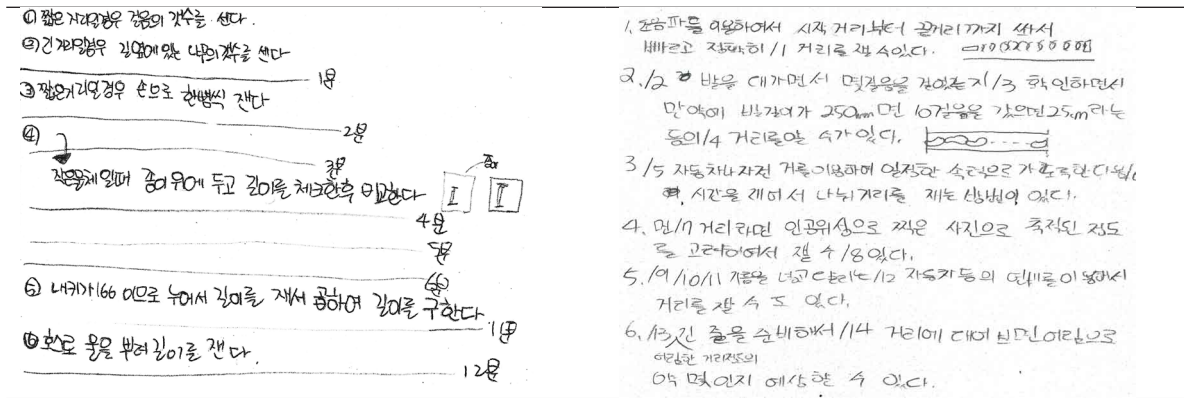 ① 짧은거리일경우 걸음의 갯수를 센다.
② 긴거리일경우 길옆에있는 나무의갯수를 센다
1분
③ 짧은거리일경우 손으로 한뼘씩 잰다
2분
④
3분
작은물체일때 종이위에 두고 길이를 체크한후 비교한다
종이
4분
5분
6분
⑤ 내키가166이므로 누어서 길이를 재서 곱하여 길이를 구한다
11분
⑥ 호스로 물을 뿌려길이를 잰다.
12분
1. 초음파를 이용하여서 시작 거리부터 끝거리까지 쏴서
빠르고 정확히/1 거리를 잴 수있다.
2./2 발을 대가면서 몇걸음을 걸었는지/3 확인하면서
만약에 발길이가 250mm면 10걸음을 갔으면 25m라는
등의/4 거리를알 수가있다.
3/5 자동차나자전거를이용하여 일정한 속력으로
시간을 재어서 나눠거리를 재는 방법이 있다.
4. 먼/7 거리라면 인공위성으로 찍은 사진으로 축척된 정도
를 고려하여서 잴 수/8있다.
5./9/10/11 기름을 넣고 달리는/12 자동차등의 연비를이용해서
거리를 잴 수 도 있다.
6./13 긴 줄을 준비해서/14 거리에 대어 보면 어림으로
어림한 거리정도의
약 몇인지 예상할 수 있다.